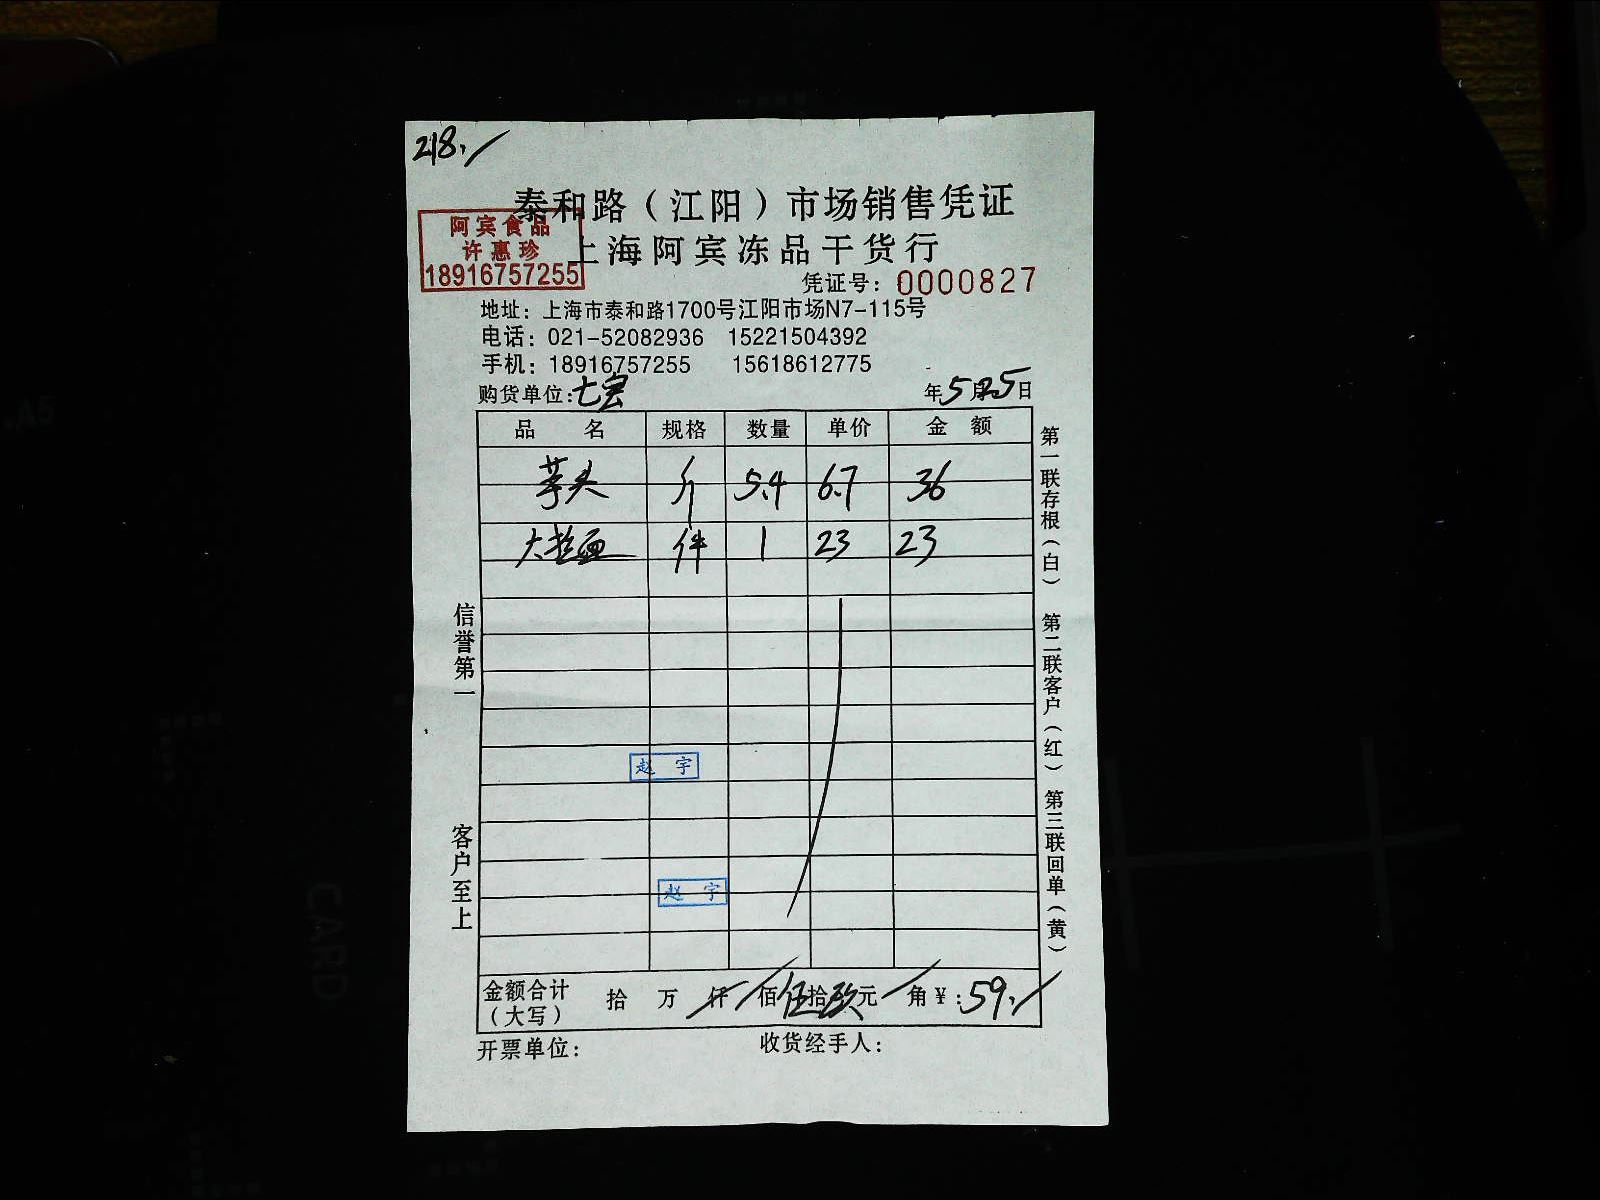 218.
泰和路（江阳）市场销售凭证
阿宾食品
许惠珍
18916757255
上海阿宾冻品干货行
凭证号：0000827
地址：上海市泰和路1700号江阳市场N7-115号
电话：021-52082936 15221504392
手机：18916757255 15618612775
购货单位：七宝 年5月25日
品名 规格 数量 单价 金额
芋头 斤 5.4 6.7 36
大拉面 件 1 23 23
赵宇
赵宇
金额合计（大写） 拾 万 仟 佰伍拾玖元 角￥：59.
开票单位： 收货经手人：
信誉第一 客户至上
第一联存根（白） 第二联客户（红） 第三联回单（黄）
A5
CARD